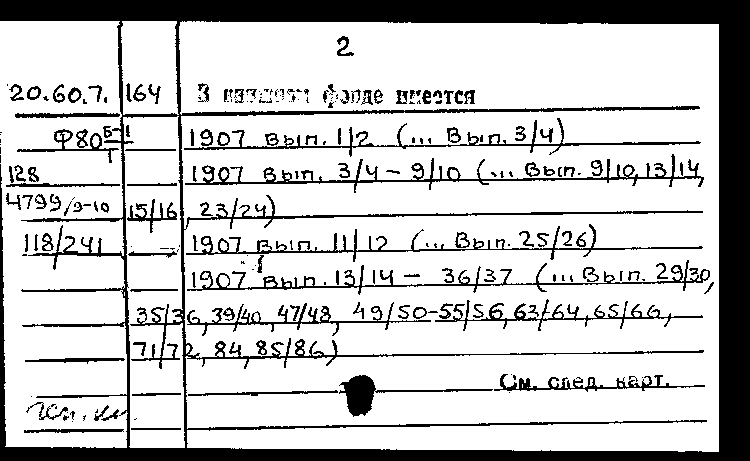 2
20.60.7. 164 В книжном фонде имеется
Ф80 Б-1/Г 1907 Вып. 1/2 (... Вып. 3/4)
128 1907 Вып. 3/4 – 9/10 (... Вып. 9/10, 13/14,
4799/9-10 15/16, 23/24)
118/241 1907 Вып. 11/12 (... Вып. 25/26)
1907 Вып. 13/14 – 36/37 (... Вып. 29/30,
35/36, 39/40, 47/48, 49/50-55/56, 63/64, 65/66,
71/72, 84, 85/86)
См. след. карт.